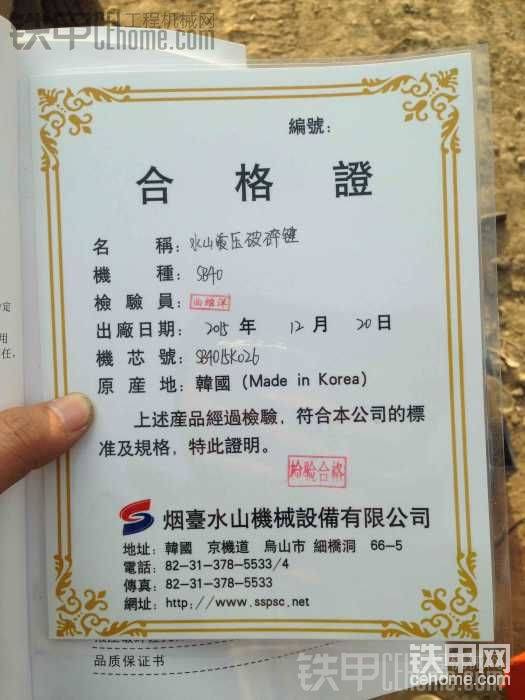 铁甲 工程机械网
CEhome.com
編號:
合格證
名稱: 水山液压破碎锤
機種: SB40
檢驗員: 曲維洋
出廠日期: 2015年 12月 20日
機芯號: SB4015K026
原産地: 韓國 (Made in Korea)
上述産品經過檢驗, 符合本公司的標
准及規格, 特此證明。
檢驗合格
烟臺水山機械設備有限公司
地址: 韓國 京機道 烏山市 細橋洞 66-5
電話: 82-31-378-5533/4
傳真: 82-31-378-5533
網址: http://www.sspsc.net
品质保证书
铁甲网
cehome.com